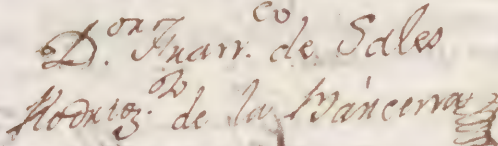 D.on Fran.co de Sales
Rodrig.z de la Bárcerra